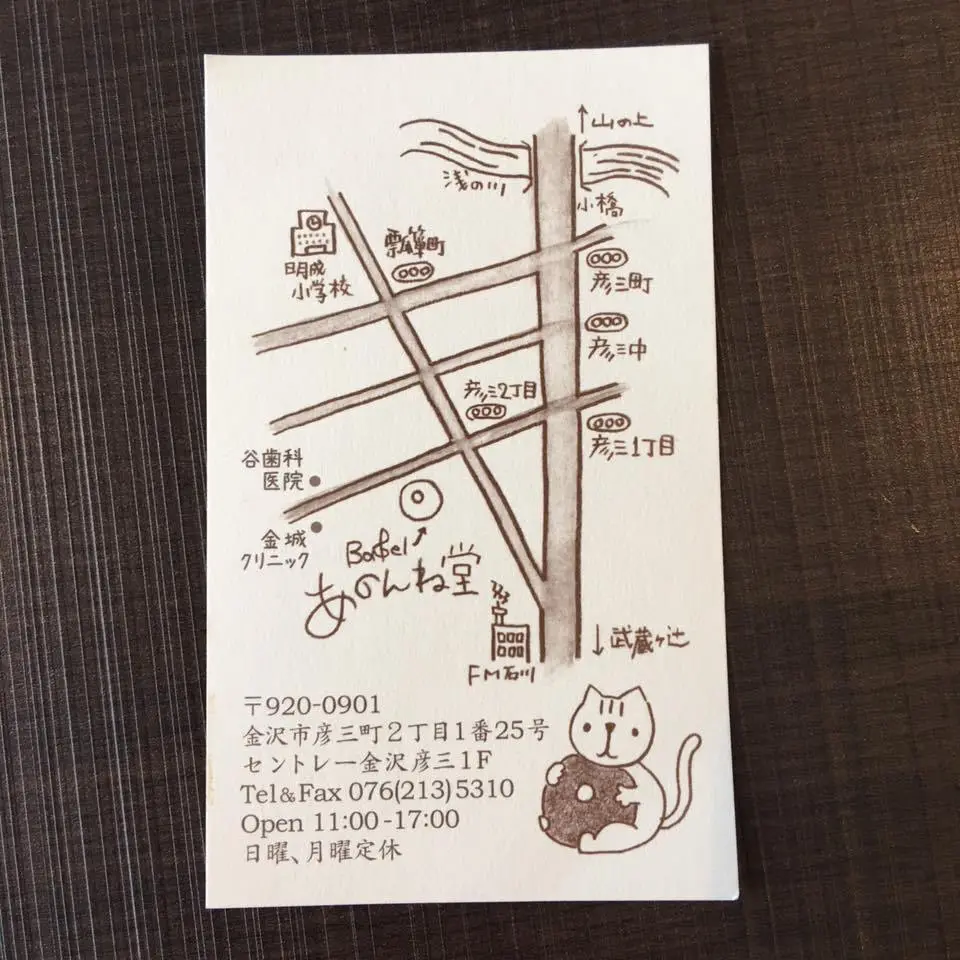 ↑山の上
浅の川
小橋
瓢箪町
明成
小学校
彦三町
彦三中
彦三2丁目
彦三1丁目
谷歯科
医院
金城
クリニック
Bagel
あのんね堂
↓武蔵ヶ辻
FM石川
〒920-0901
金沢市彦三町2丁目1番25号
セントレー金沢彦三1F
Tel&Fax 076(213)5310
Open 11:00-17:00
日曜、月曜定休